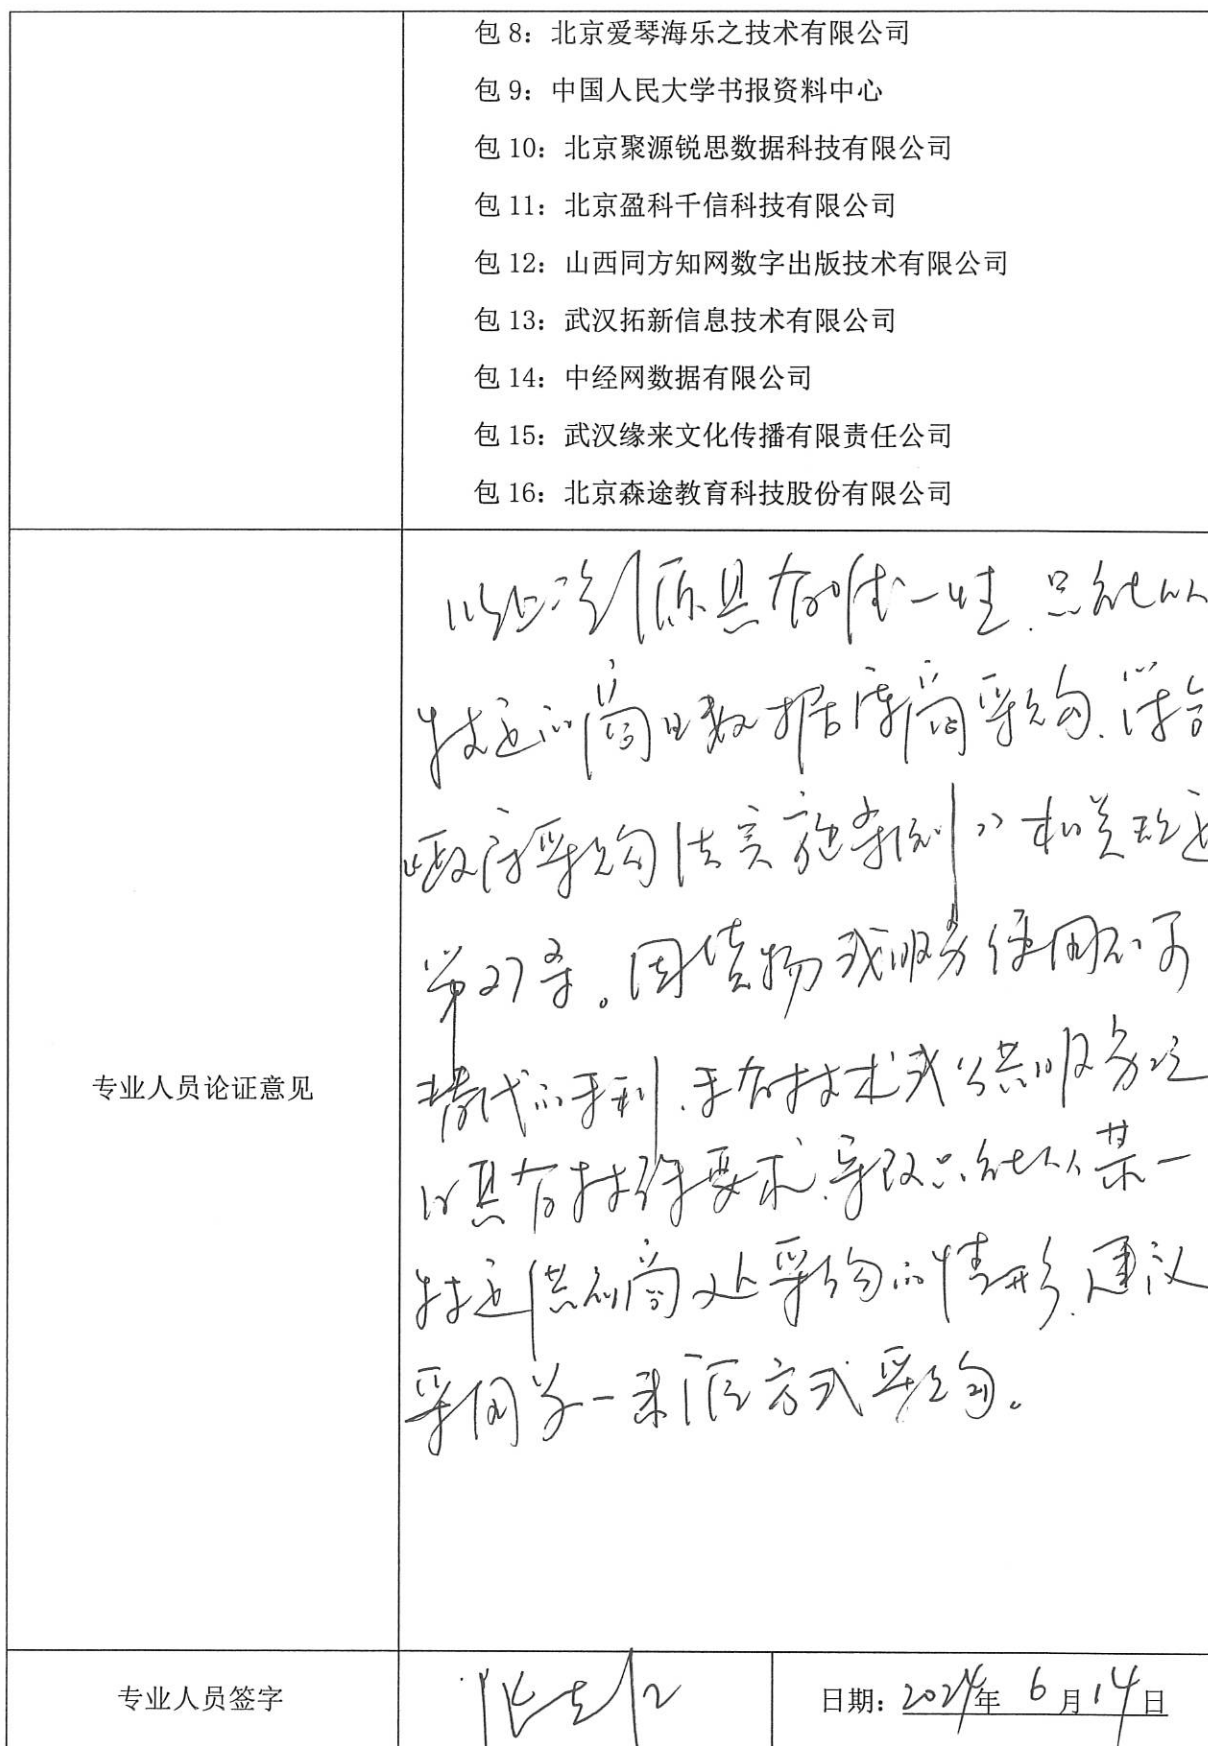 包 8：北京爱琴海乐之技术有限公司
包 9：中国人民大学书报资料中心
包 10：北京聚源锐思数据科技有限公司
包 11：北京盈科千信科技有限公司
包 12：山西同方知网数字出版技术有限公司
包 13：武汉拓新信息技术有限公司
包 14：中经网数据有限公司
包 15：武汉缘来文化传播有限责任公司
包 16：北京森途教育科技股份有限公司
专业人员论证意见
以上资源具有唯一性，只能从
特定的商数据库商采购，符合
《政府采购法实施条例》相关规定
第27条。因货物或服务使用不可
替代的专利、专有技术或公共服务项
目具有特殊要求，导致只能从某一
特定供应商处采购的情形，建议
采用单一来源方式采购。
专业人员签字
日期：2024年 6 月 14 日